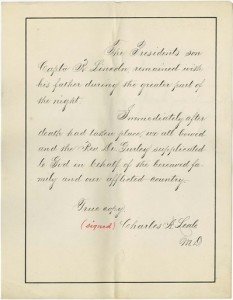 The Presidents son
Capts R. Lincoln, remained with
his father during the greater part of
the night.
Immediately after
death had taken place, we all bowed
and the Rev. Dr. Gurley supplicated
to God in behalf of the bereaved fa-
mily and our afflicted country.
True copy
(signed) Charles A. Leale
M.D.